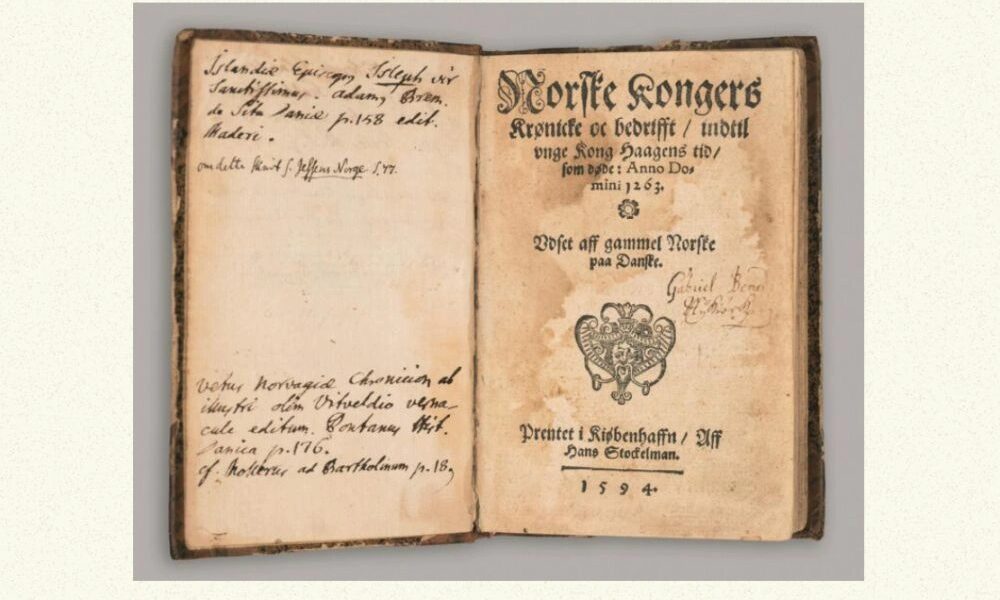 Islandiæ Episcopus Isleph vir
Sanctissimus. Adamus Brem.
de Situ Daniæ p. 158 edit.
Maderi.
om dette skrivt s. Jessens Norge S. 77.
Vetus Norvagiæ Chronicion ab
illustri olim Vitveldio verna-
cule editum. Pontanus Hist.
Danica p. 176.
cf. Mollerus ad Bartholinum p. 18
Norſke Kongers
Krønicke oc bedrifft / indtil
vnge Kong Haagens tid /
ſom døde: Anno Do-
mini 1263.
Vdſet aff gammel Norſke
paa Danſke.
Gabriel
Prentet i Kiøbenhaffn / Aff
Hans Stockelman.
1594.